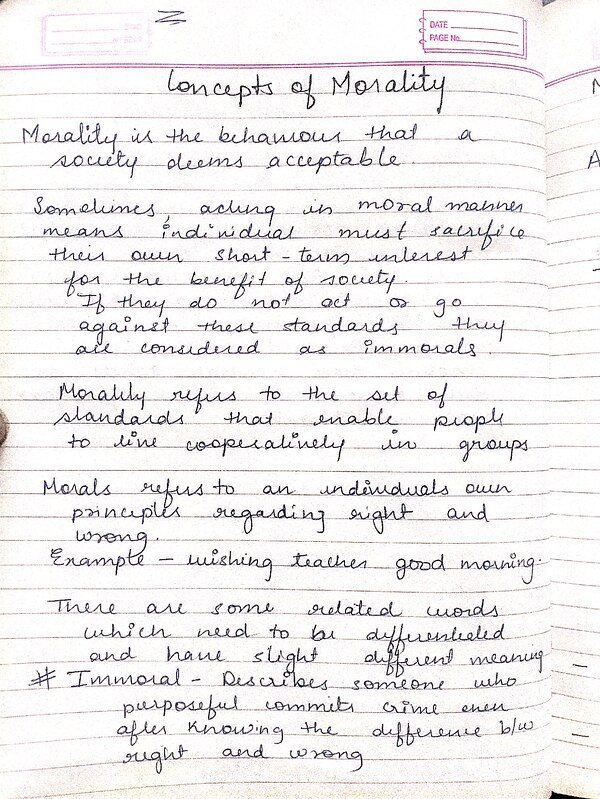 DATE
PAGE No.
Concepts of Morality
Morality is the behaviour that a
society deems acceptable.
Sometimes, acting in moral manner
means individual must sacrifice
their own short-term interest
for the benefit of society.
If they do not act or go
against these standards they
are considered as immorals.
Morality refers to the set of
standards that enable people
to live cooperatively in groups
Morals refers to an individuals own
principles regarding right and
wrong.
Example - wishing teacher good morning.
There are some related words
which need to be differentiated
and have slight different meaning
# Immoral - Describes someone who
purposeful commits crime even
after knowing the difference b/w
right and wrong